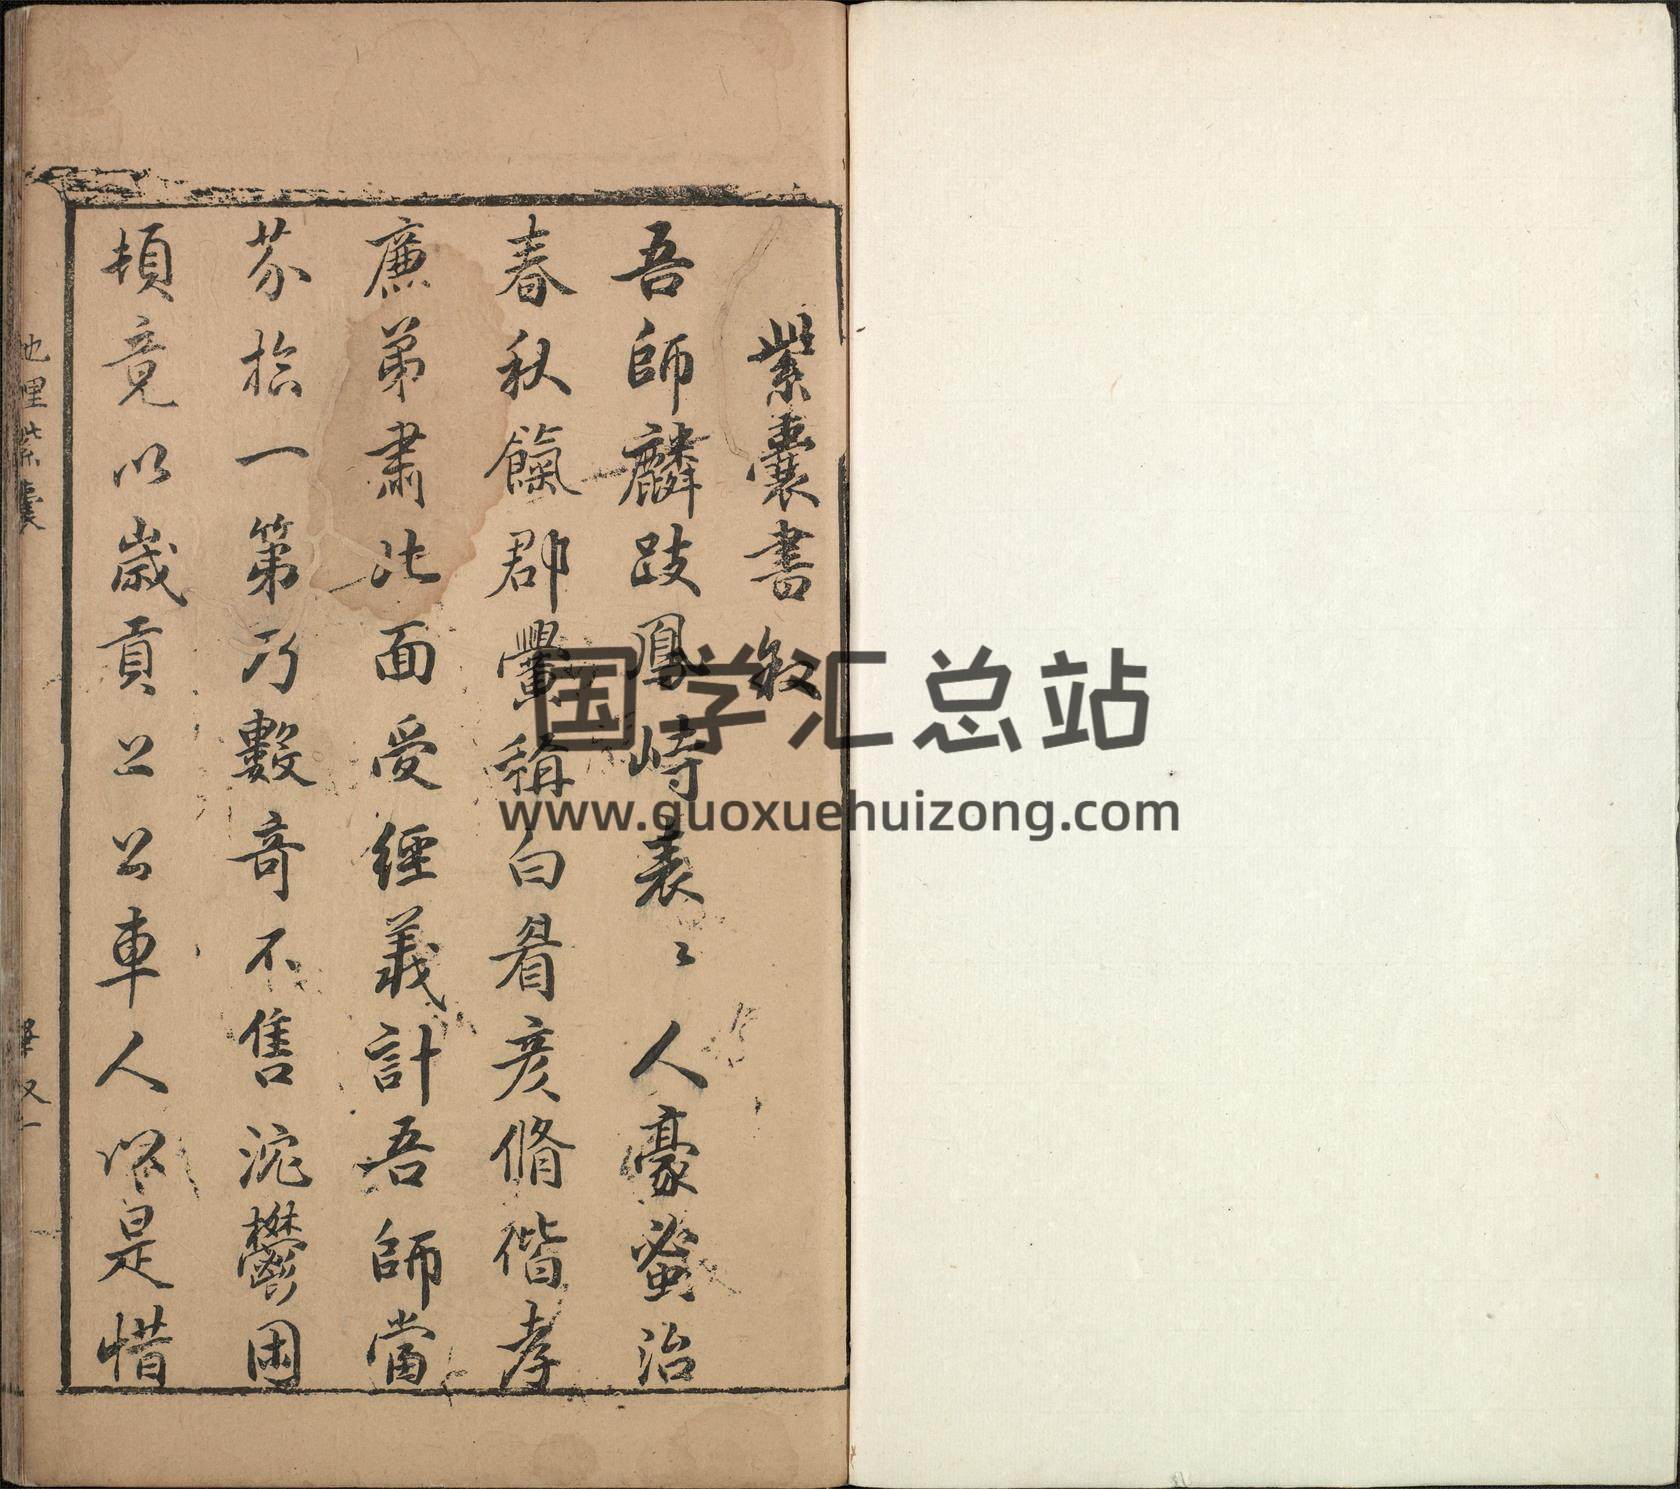 紫囊書叙
吾師麟跂鳳峙表〻人豪蚤治
春秋餼郡黌稱白眉彦脩偕孝
廉弟肅北面受經義計吾師當
芥拾一第乃數奇不售沱鬱困
頓竟以歲貢上公車人以是惜
地理紫囊
畢叙一
国学汇总站
www.guoxuehuizong.com